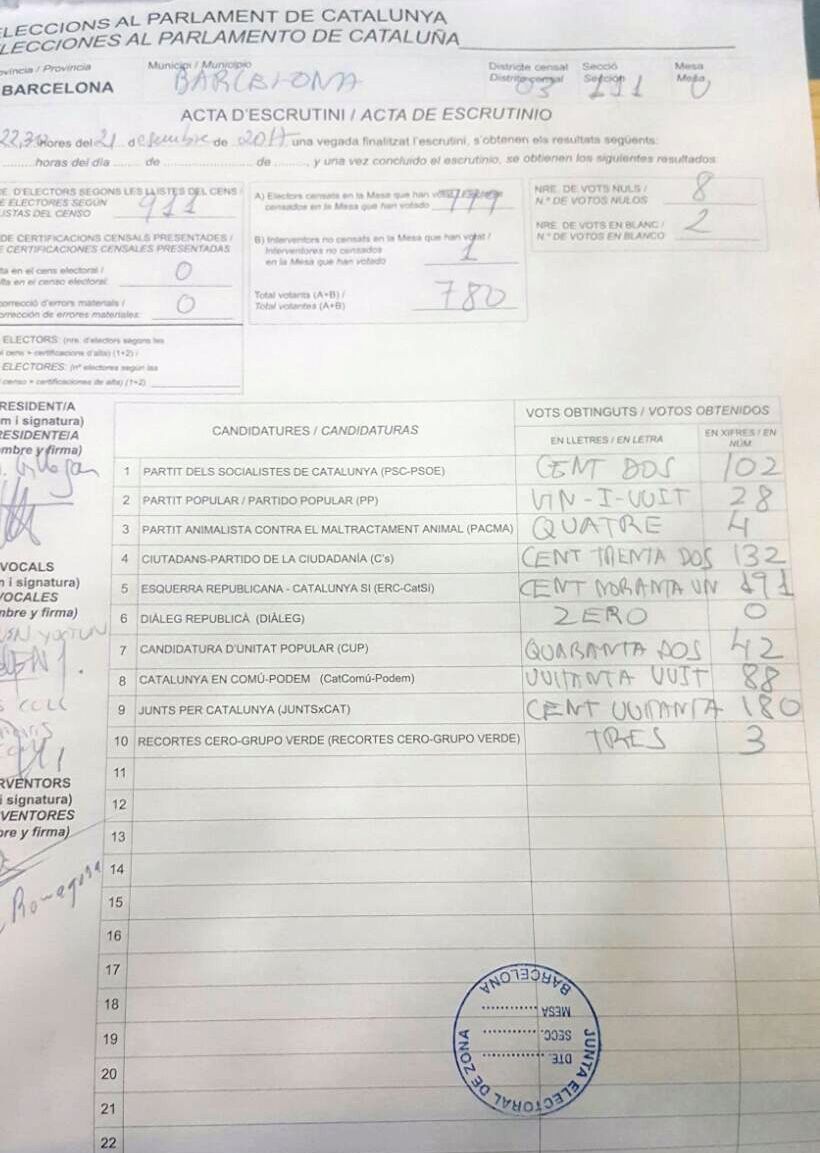 LECCIONS AL PARLAMENT DE CATALUNYA
LECCIONES AL PARLAMENTO DE CATALUÑA
ovíncia / Provincia
BARCELONA
Municipi / Municipio
BARCELONA
Districte censal
Distrito censal
03
Secció
Sección
191
Mesa
Mesa
U
ACTA D'ESCRUTINI / ACTA DE ESCRUTINIO
22,30 Hores del 21 d esembre de 2017 una vegada finalitzat l'escrutini, s'obtenen els resultats següents:
horas del día de de , y una vez concluido el escrutinio, se obtienen los siguientes resultados
E. D'ELECTORS SEGONS LES LLISTES DEL CENS /
E ELECTORES SEGÚN
ISTAS DEL CENSO
911
DE CERTIFICACIONS CENSALS PRESENTADES /
E CERTIFICACIONES CENSALES PRESENTADAS
ta en el cens electoral /
lta en el censo electoral:
0
orrecció d'errors materials /
orrección de errores materiales:
0
A) Electors censats en la Mesa que han votat /
censados en la Mesa que han votado
779
B) Interventors no censats en la Mesa que han votat /
Interventores no censados
en la Mesa que han votado
1
Total votants (A+B) /
Total votantes (A+B)
780
NRE. DE VOTS NULS /
N.º DE VOTOS NULOS
8
NRE. DE VOTS EN BLANC /
N.º DE VOTOS EN BLANCO
2
ELECTORS: (nre. d'electors segons les
l cens + certificacions d'alta) (1+2) /
ELECTORES: (nº electores según las
censo + certificaciones de alta) (1+2)
RESIDENT/A
m i signatura)
RESIDENTE/A
mbre y firma)
VOCALS
m i signatura)
VOCALES
mbre y firma)
RVENTORS
i signatura)
VENTORES
bre y firma)
Romagosa
CANDIDATURES / CANDIDATURAS
VOTS OBTINGUTS / VOTOS OBTENIDOS
EN LLETRES / EN LETRA
EN XIFRES / EN NÚM.
1 PARTIT DELS SOCIALISTES DE CATALUNYA (PSC-PSOE) CENT DOS 102
2 PARTIT POPULAR / PARTIDO POPULAR (PP) VIN-I-VUIT 28
3 PARTIT ANIMALISTA CONTRA EL MALTRACTAMENT ANIMAL (PACMA) QUATRE 4
4 CIUTADANS-PARTIDO DE LA CIUDADANÍA (C's) CENT TRENTA DOS 132
5 ESQUERRA REPUBLICANA - CATALUNYA SÍ (ERC-CatSí) CENT NORANTA UN 191
6 DIÀLEG REPUBLICÀ (DIÀLEG) ZERO 0
7 CANDIDATURA D'UNITAT POPULAR (CUP) QUARANTA DOS 42
8 CATALUNYA EN COMÚ-PODEM (CatComú-Podem) VUITANTA VUIT 88
9 JUNTS PER CATALUNYA (JUNTSxCAT) CENT VUITANTA 180
10 RECORTES CERO-GRUPO VERDE (RECORTES CERO-GRUPO VERDE) TRES 3
11
12
13
14
15
16
17
18
19
20
21
22
JUNTA ELECTORAL DE ZONA
DTE.
SECC.
MESA
BARCELONA